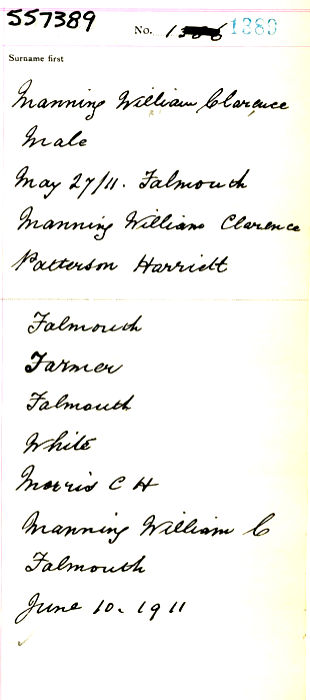 557389
No. 1383
Surname first
Manning William Clarence
Male
May 27/11. Falmouth
Manning William Clarence
Patterson Harriett
Falmouth
Farmer
Falmouth
White
Morris C H
Manning William C
Falmouth
June 10. 1911